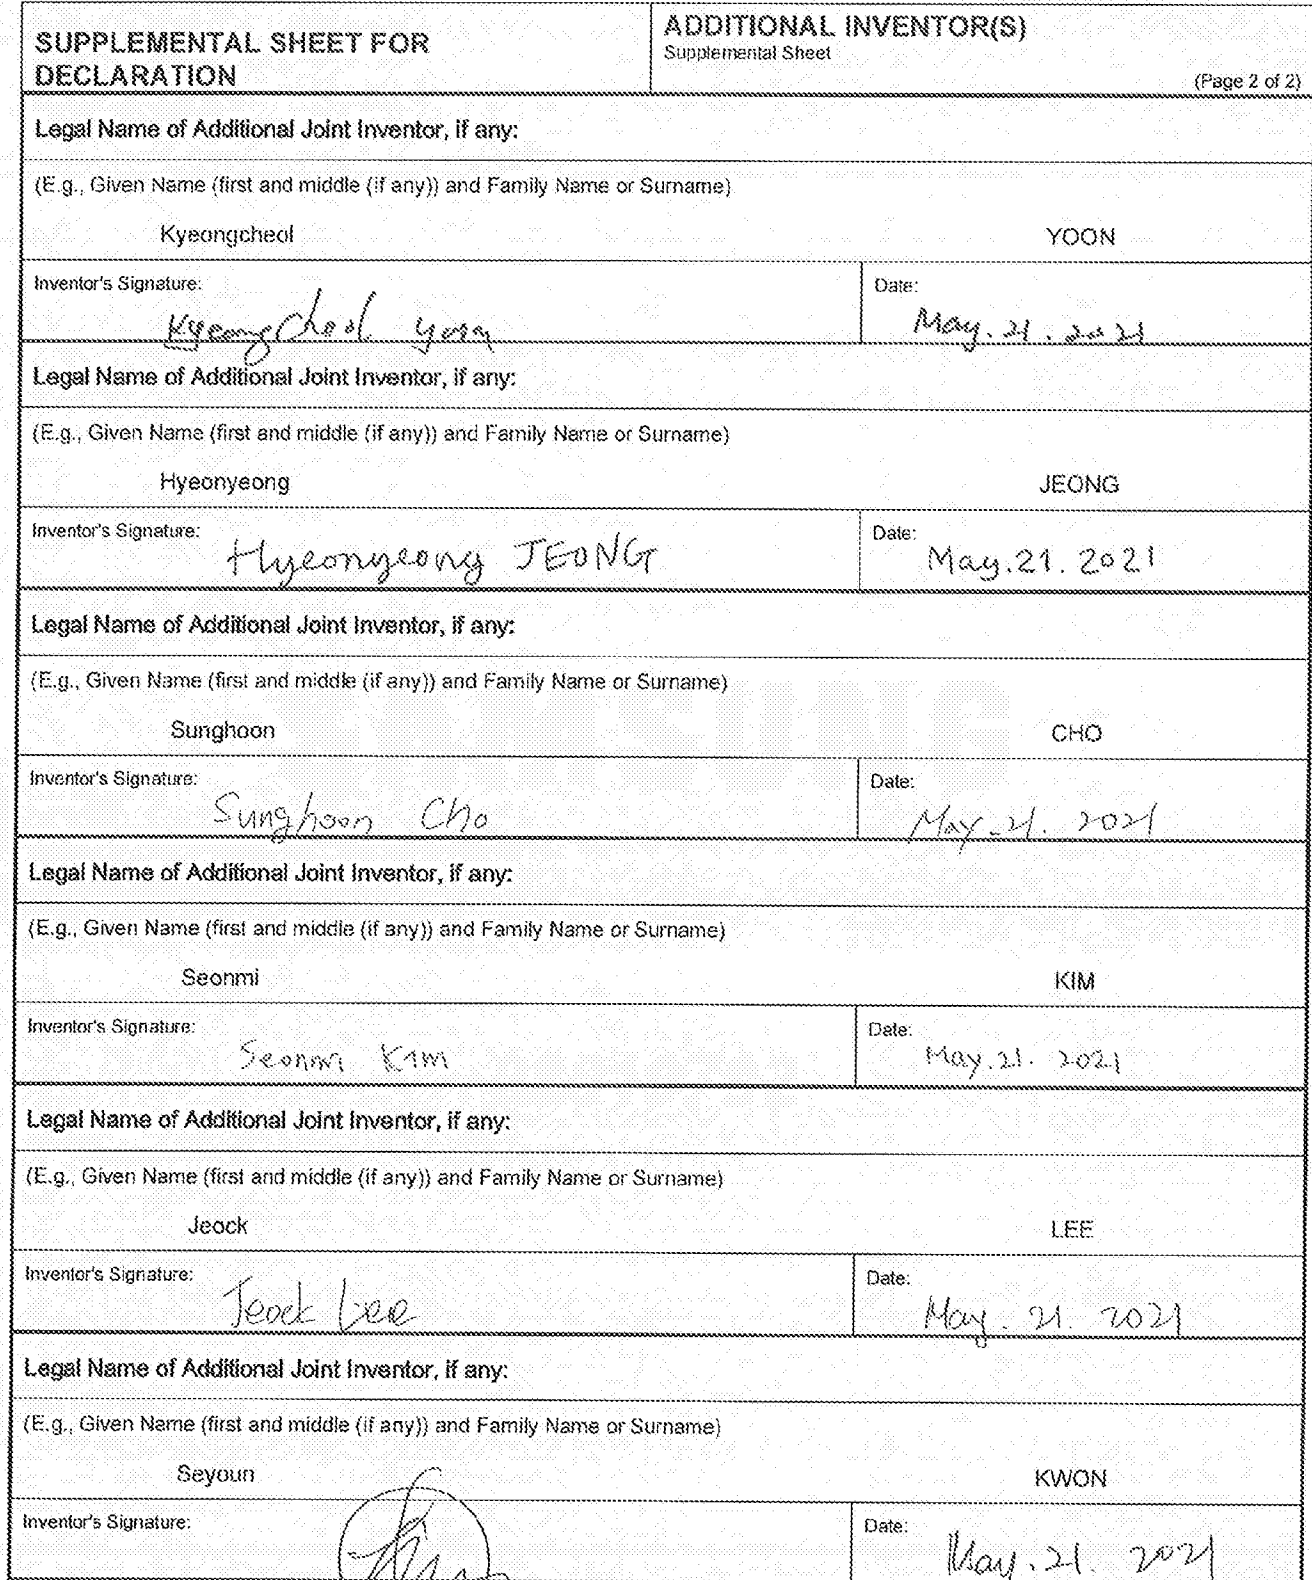 SUPPLEMENTAL SHEET FOR
DECLARATION
ADDITIONAL INVENTOR(S)
Supplemental Sheet
(Page 2 of 2)
Legal Name of Additional Joint Inventor, if any:
(E.g., Given Name (first and middle (if any)) and Family Name or Surname)
Kyeongcheol YOON
Inventor's Signature: Date:
Kyeongcheol Yoon May. 21. 2021
Legal Name of Additional Joint Inventor, if any:
(E.g., Given Name (first and middle (if any)) and Family Name or Surname)
Hyeonyeong JEONG
Inventor's Signature: Date:
Hyeonyeong JEONG May. 21. 2021
Legal Name of Additional Joint Inventor, if any:
(E.g., Given Name (first and middle (if any)) and Family Name or Surname)
Sunghoon CHO
Inventor's Signature: Date:
Sunghoon Cho May. 21. 2021
Legal Name of Additional Joint Inventor, if any:
(E.g., Given Name (first and middle (if any)) and Family Name or Surname)
Seonmi KIM
Inventor's Signature: Date:
Seonmi Kim May. 21. 2021
Legal Name of Additional Joint Inventor, if any:
(E.g., Given Name (first and middle (if any)) and Family Name or Surname)
Jeock LEE
Inventor's Signature: Date:
Jeock Lee May. 21. 2021
Legal Name of Additional Joint Inventor, if any:
(E.g., Given Name (first and middle (if any)) and Family Name or Surname)
Seyoun KWON
Inventor's Signature: Date:
May. 21. 2021